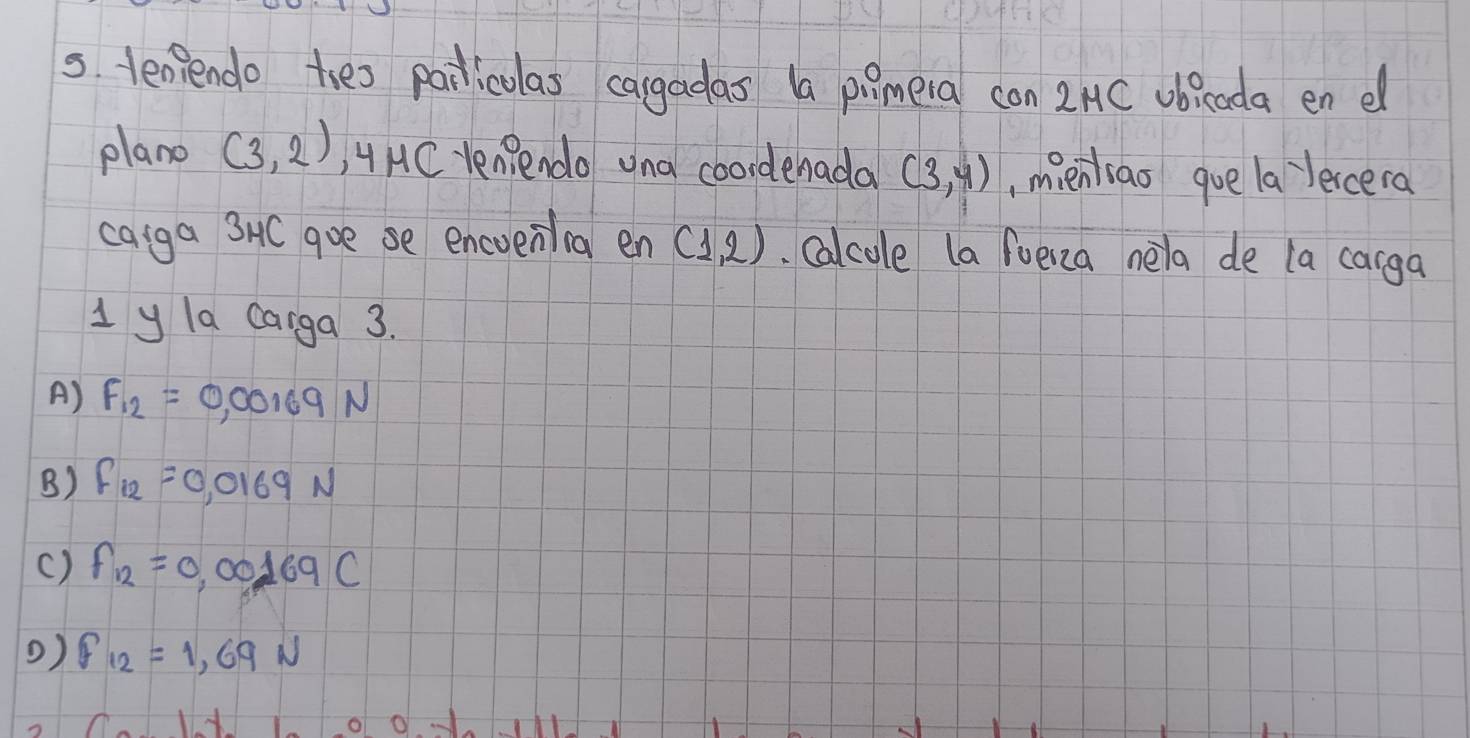 5. teniendo tres particulas cargadas la primera con 2MC ubicada en el
plano (3,2), 4MC teniendo una coordenada (3,4), mientras que la tercera
carga 3MC que se encuentra en (1,2). Calcule la fuerza neta de la carga
1 y la carga 3.
A) F12 = 0,00169 N
B) F12 = 0,0169 N
C) F12 = 0,00169 C
D) F12 = 1,69 N